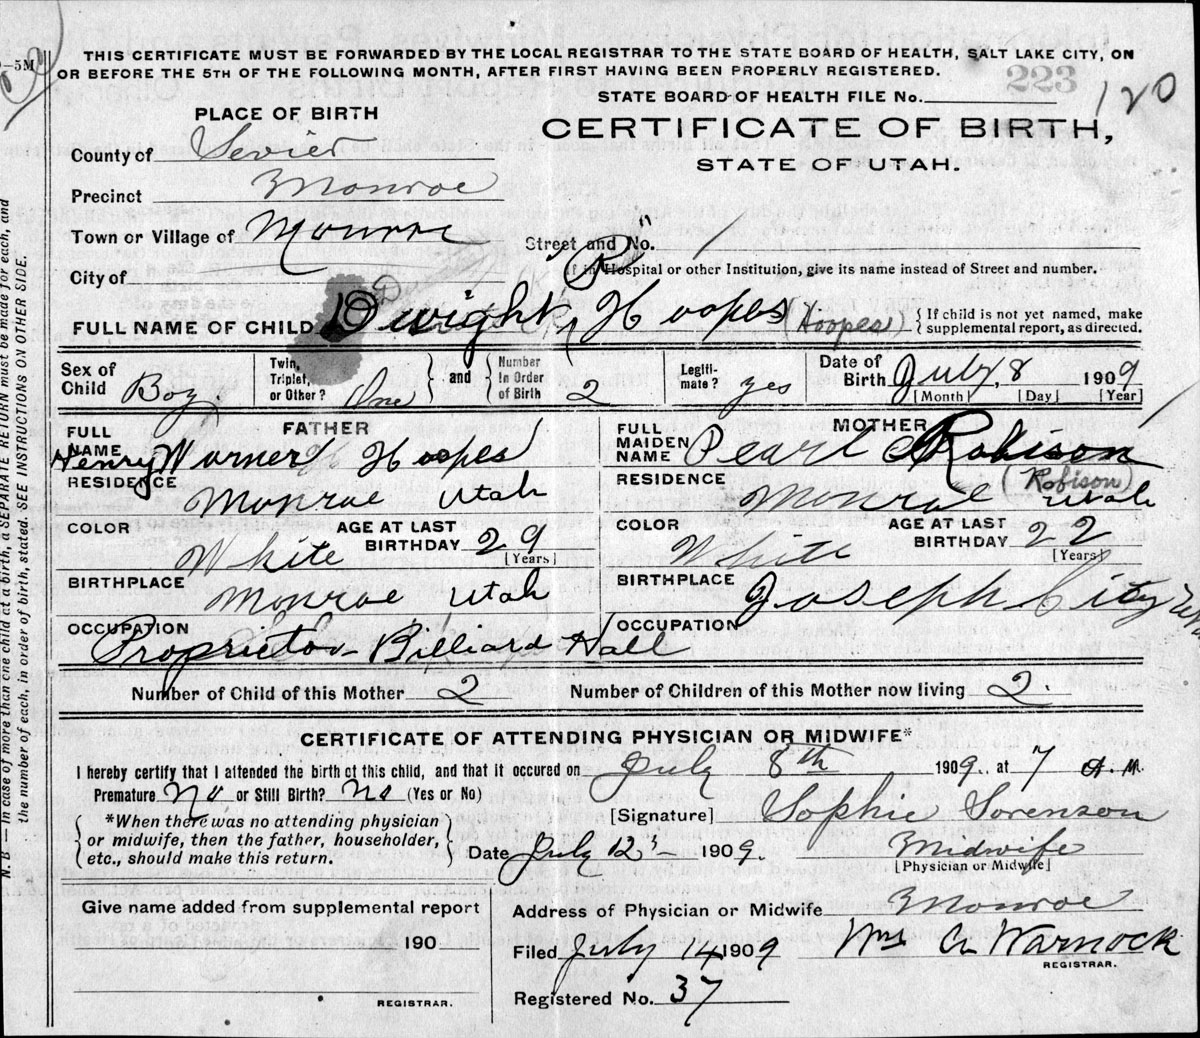 THIS CERTIFICATE MUST BE FORWARDED BY THE LOCAL REGISTRAR TO THE STATE BOARD OF HEALTH, SALT LAKE CITY, ON
OR BEFORE THE 5TH OF THE FOLLOWING MONTH, AFTER FIRST HAVING BEEN PROPERLY REGISTERED.
—5M
223
120
STATE BOARD OF HEALTH FILE No.
PLACE OF BIRTH
CERTIFICATE OF BIRTH,
STATE OF UTAH.
County of Sevier
Precinct Monroe
Town or Village of Monroe
Street and No.
City of
If in Hospital or other Institution, give its name instead of Street and number.
"R"
FULL NAME OF CHILD Dwight Hoopes (Hoopes) { If child is not yet named, make
supplemental report, as directed.
Sex of Child Boy
Twin, Triplet, or Other? One } and { Number In Order of Birth 2
Legiti-mate? yes
Date of Birth July 8 1909
[Month] [Day] [Year]
FATHER
FULL NAME Henry Warner Hoopes
RESIDENCE Monroe Utah
COLOR White AGE AT LAST BIRTHDAY 29 [Years]
BIRTHPLACE Monroe Utah
OCCUPATION Proprietor Billiard Hall
MOTHER
FULL MAIDEN NAME Pearl Robison
(Robison)
RESIDENCE Monroe Utah
COLOR White AGE AT LAST BIRTHDAY 22 [Years]
BIRTHPLACE Joseph City
OCCUPATION
Number of Child of this Mother 2 Number of Children of this Mother now living 2.
CERTIFICATE OF ATTENDING PHYSICIAN OR MIDWIFE*
I hereby certify that I attended the birth of this child, and that it occured on July 8th 1909. at 7 A.M.
Premature No or Still Birth? No (Yes or No)
[Signature] Sophie Sorenson
{ *When there was no attending physician
or midwife, then the father, householder,
etc., should make this return. }
Date July 12 1909. Midwife
[Physician or Midwife]
Give name added from supplemental report
190
REGISTRAR.
Address of Physician or Midwife Monroe
Filed July 14 1909 Wm A Warnock
REGISTRAR.
Registered No. 37
N. B.—In case of more than one child at a birth, a SEPARATE RETURN must be made for each, and
the number of each, in order of birth, stated. SEE INSTRUCTIONS ON OTHER SIDE.